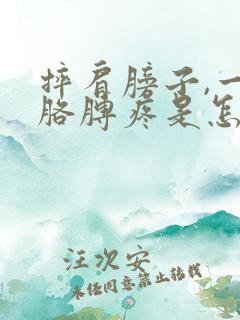 摔肩膀子,一
胳膊疼是怎
汪次安
未经同意禁止转载